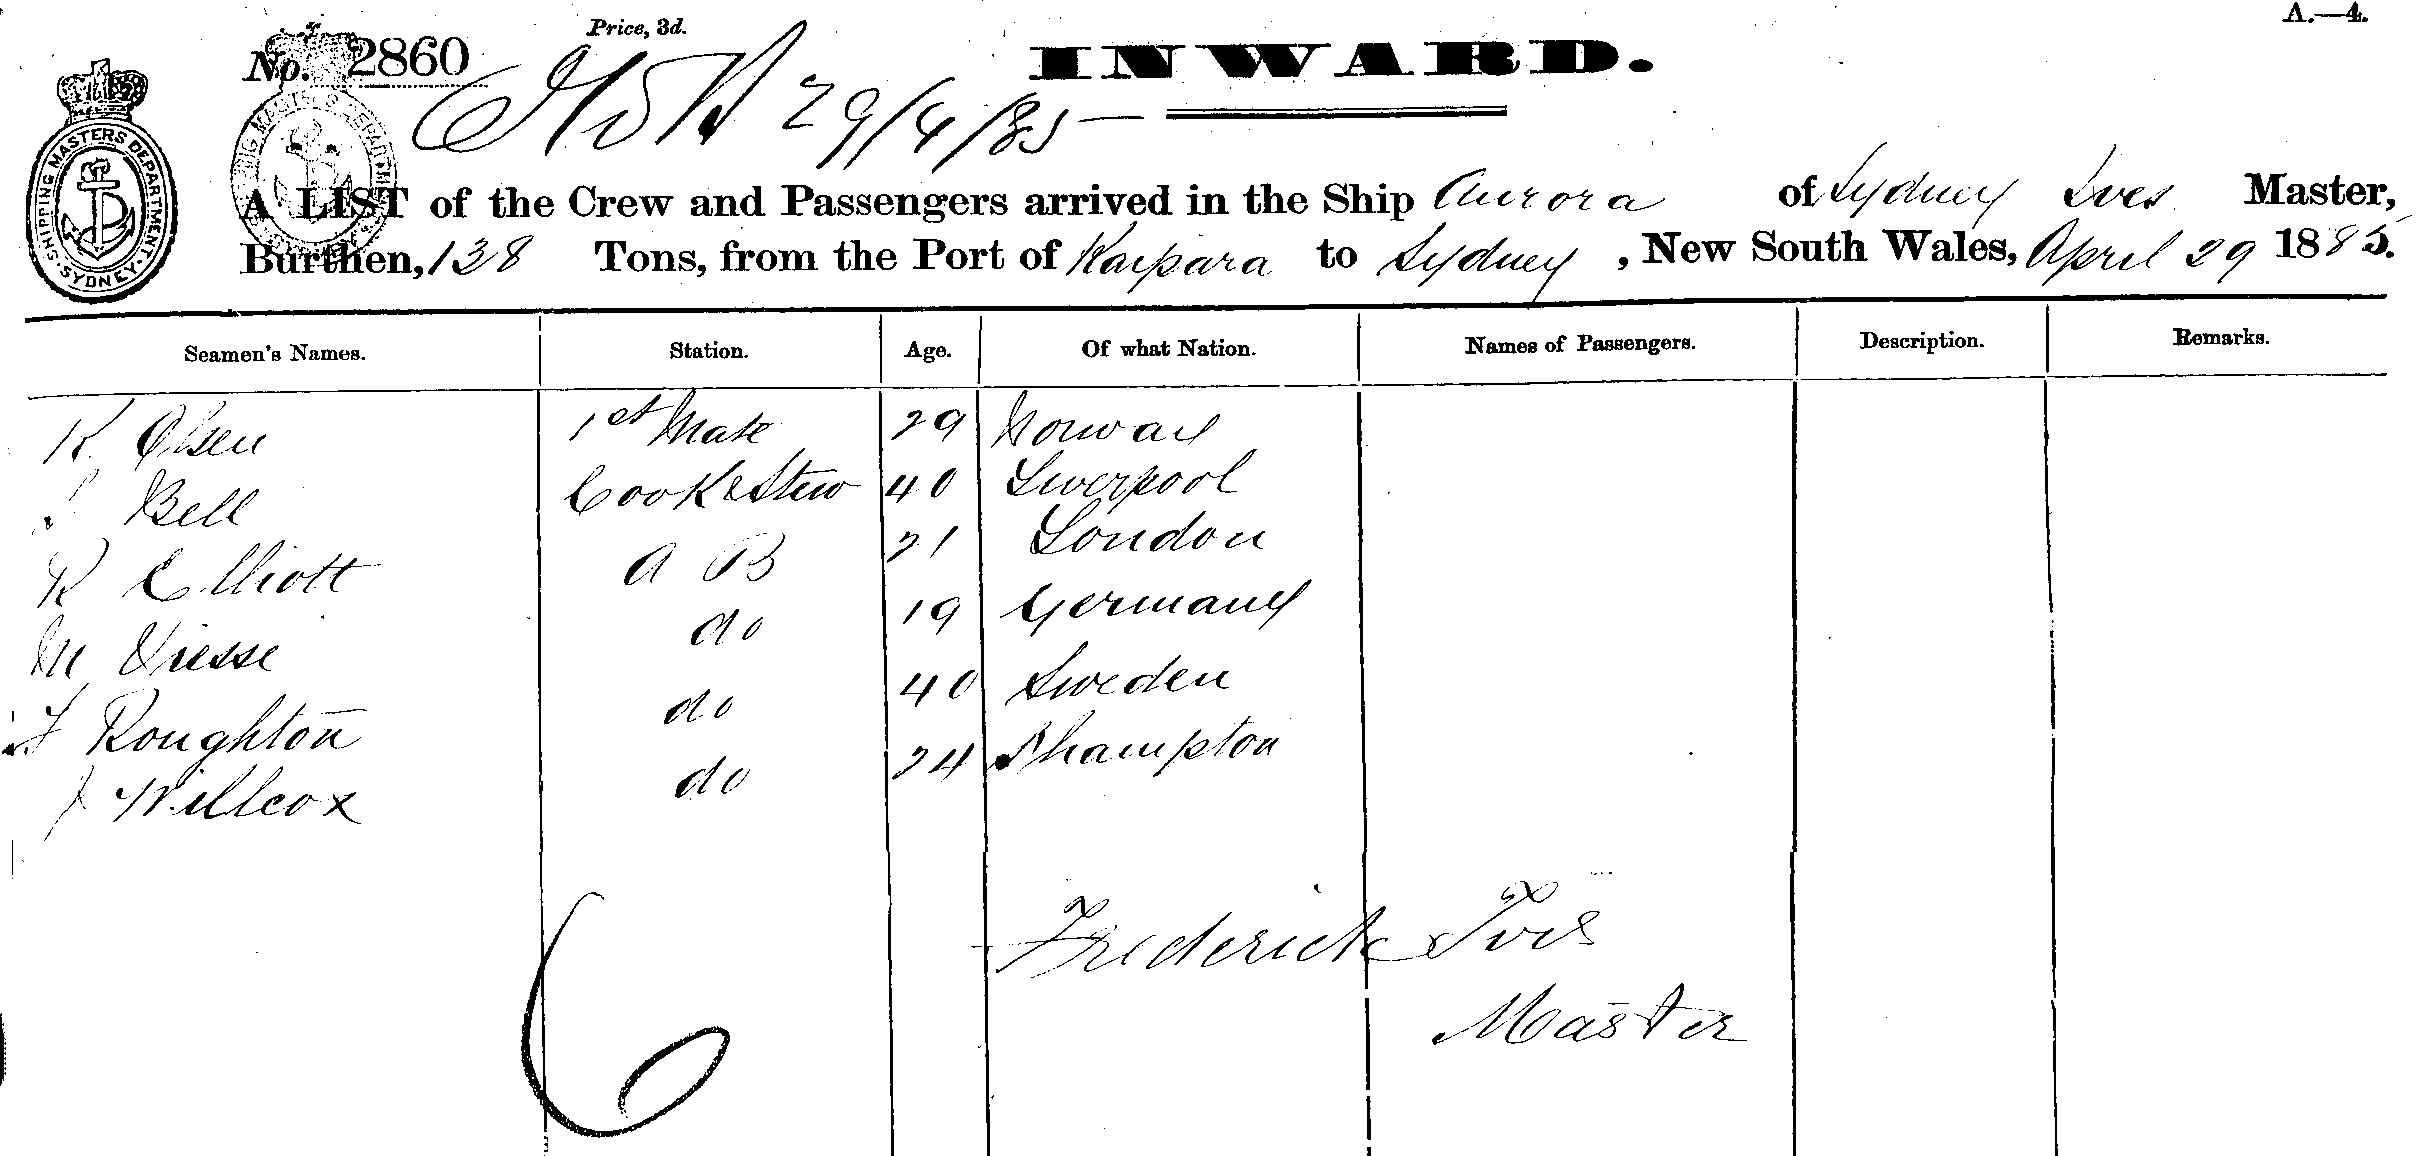 Price, 3d.
A.—4.
No. 2860
INWARD.
29/4/85
SHIPPING MASTERS DEPARTMENT. SYDNEY.
A LIST of the Crew and Passengers arrived in the Ship Aurora of Sydney Ives Master,
Burthen, 138 Tons, from the Port of Kaipara to Sydney, New South Wales, April 29 1885.
Seamen's Names. Station. Age. Of what Nation. Names of Passengers. Description. Remarks.
K Olsen 1st Mate 29 Norway
Bell Cook & Stew 40 Liverpool
R Elliott A B 21 London
M do 19 Germany
F Roughton do 40 Sweden
J Willcox do 24 Shampton
Frederick Ives
Master
6